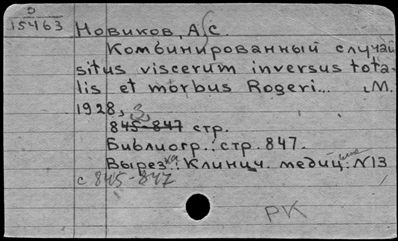 О
15463
Новиков, А.С.
Комбинированный случай
situs viscerum inversus tota-
lis et morbus Rogeri... M.
1928, 3,
845-847 стр.
Библиогр.: стр. 847.
Вырезка: Клинич. медицина N13
с 845-847
РК